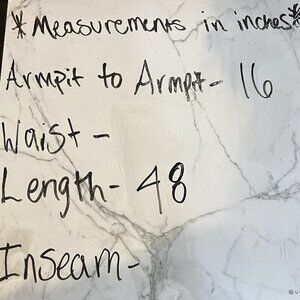 *Measurements in inches*
Armpit to Armpit- 16
Waist -
Length- 48
Inseam-